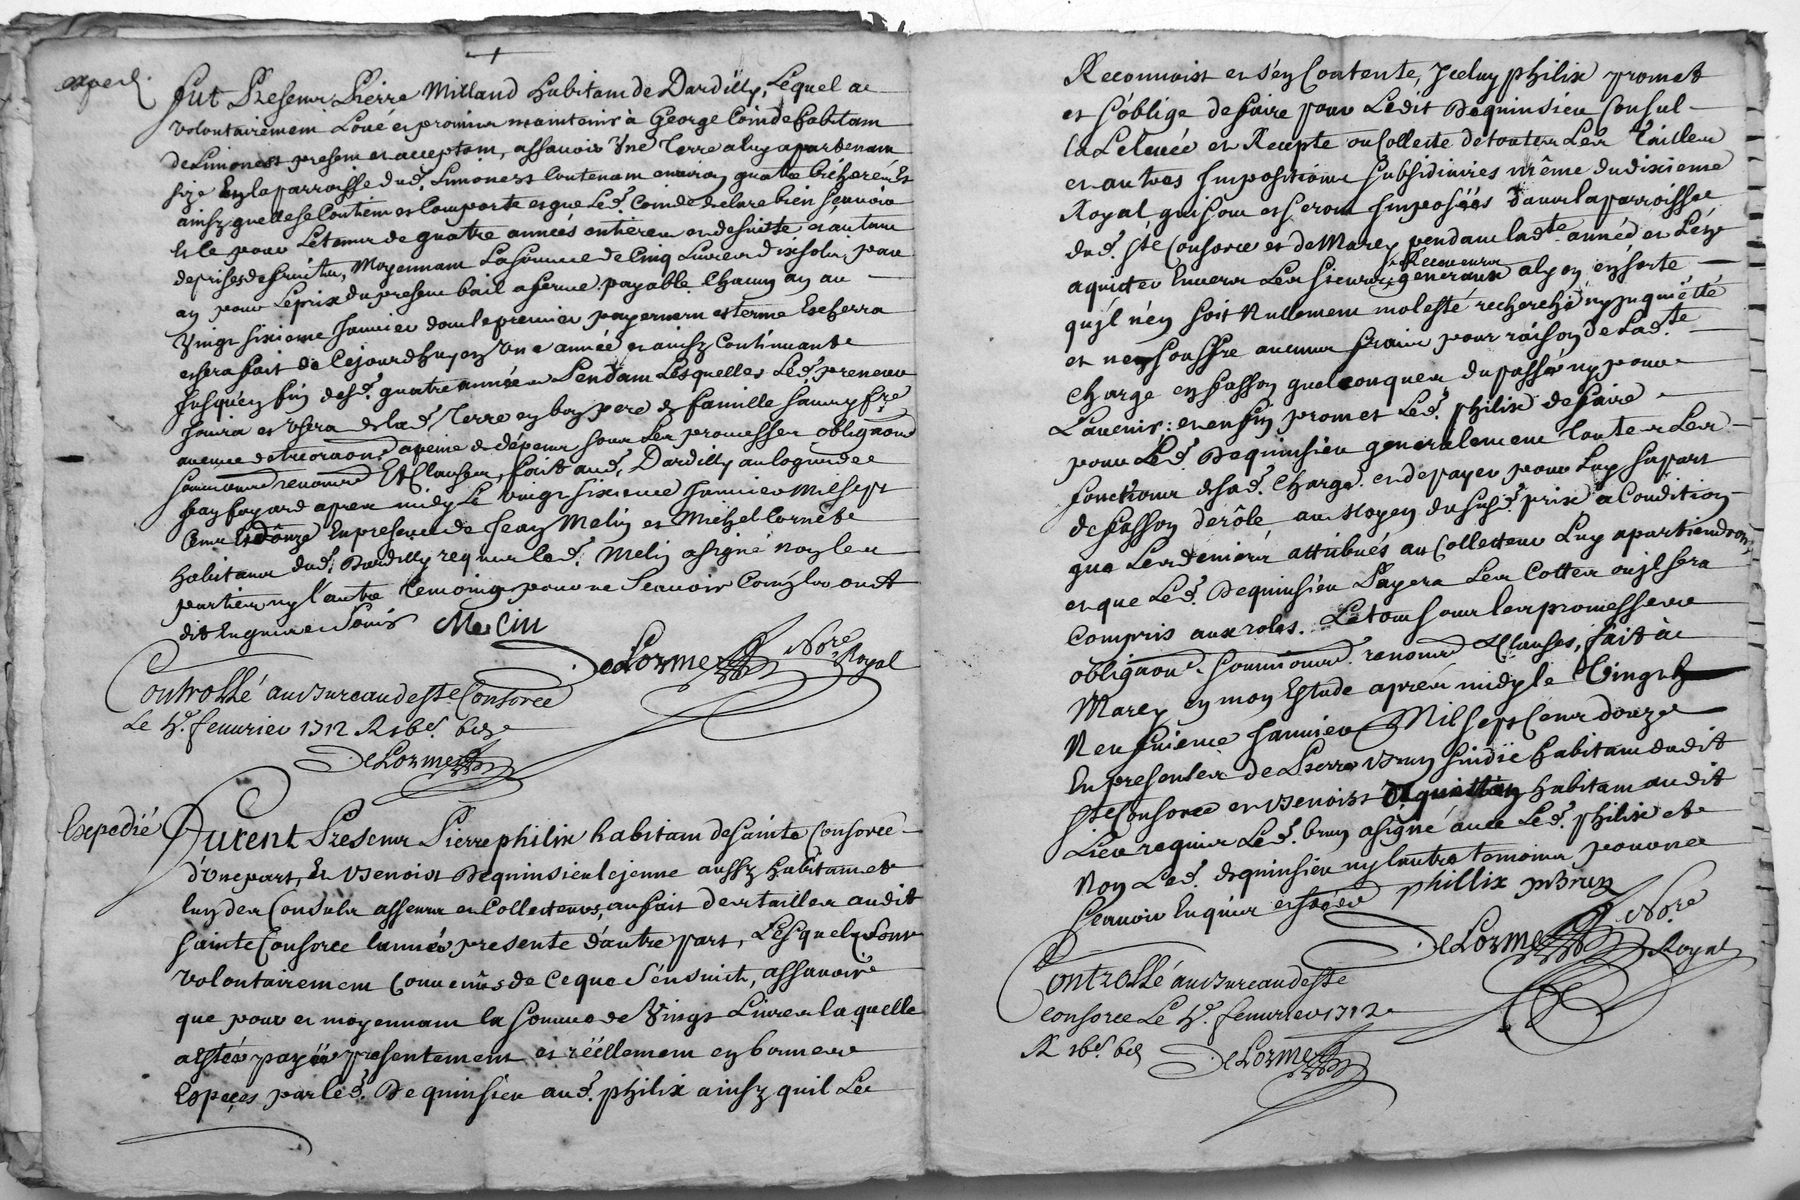 exped.
fut Present Pierre Milland habitant de Dardilly, Lequel a
volontairement Loué et promier maintenir à George Coinde habitant
de Limonest present et acceptant, assavoir Une Terre a luy apartenant
size En la parroisse dud. Limonest Contenant environ quatre bicherées Et
ainsy quelle se Contient et Comporte et que Led. Coinde declare bien sçavoir
Et le pour Le temps de quatre années entieres et de suitte et autant
de prises de fruits, Moyennant La somme de Cinq Livres dix sols, pour
et pour Le prix du present bail a ferme payable Chacun an au
Vingt sixieme Janvier dont le premier payement et terme Escherra
et sera fait de Cejourdhuy en Une année et ainsy Continuant
Jusqu'en fin desd. quatre années Pendant Lesquelles Led. preneur
Jouira et Usera de lad. Terre en bon pere de famille sans y f.re
aucune deterioraon, a peine de dépens sous Les promesses obligaons
soumissions renonce Et Clauses, fait aud. Dardilly au logis de
Jean fayard apres midy Le Vingt sixieme Janvier Mil sept
Cent Et douze En presence de Jean Melin et Michel Cornet
habitans dud. Dardilly requis led. Melin a signé non les
parties ny l'autre temoing pour ne Scavoir Coinz les ont
dit Enquis et Sommés Melin
DeLorme No.re Royal
Controllé au Bureau de S.te Consorce
Le 4.e feuvrier 1712 R
DeLorme
Expedié
Furent Presens Pierre philix habitant de Sainte Consorce
d'Une part, Et Benoist Dequinsieu le jeune aussy habitant et
l'un des Consuls asseeurs et Collecteurs, au fait des tailles audit
Sainte Consorce l'année presente d'autre part, Lesquels sont
volontairement Convenus de Ce que S'ensuit, assavoir
que pour et moyennant la somme de Vingt Livres laquelle
a esté payée presentement et réellement en bonnes
Especes par led. Dequinsieu aud. philix ainsy quil Le
Reconnoist et s'en Contente, Iceluy philix promet
et s'oblige de faire pour Ledit Dequinsieu Consul
La Levée et Recepte ou Collecte de toutes Les Tailles
et autres Impositions Subsidiaires même du dixieme
Royal qui sont et seront Imposées dans la parroisse
dud. Ste Consorce et de Marcy pendant lad.te année et L'en
aquitter Envers Les sieurs Receveurs generaux alyon en sorte
qu'il n'en soit Nullement molesté recherché ny inquiétté
et n'en souffre aucuns frais pour raison de Lad.te
Charge en fasson quelconques du passé ny pour
L'avenir; et en fin promet Led. philix de faire
pour Led. Dequinsieu generalement toutes Les
fonctions de sad. Charge et de payer pour Luy sa part
de fasson de rôle au Moyen du susd. prix a Condition
que Les deniers attribués au Collecteur Luy apartiendront,
et que Led. Dequinsieu Payera Les Cottes ou il sera
Compris aux roles. Le tout sous les promesses
obligaons soumissions renonce et Clauses, fait à
Marcy en mon Estude apres midy le Vingt
Neufuieme Janvier Mil sept Cent douze
En presences de Pierre Brun sindic habitant dudit
Ste Consorce et Benoist habitant audit
Lieu requis Led. brun a signé avec Led. philix et
Non Led. dequinsieu ny l'autre temoins pour ne
Scavoir Enquis et sommés phillix P Brun
DeLorme No.re Royal
Controllé au Bureau de S.te
Consorce Le 4.e feuvrier 1712
R
DeLorme